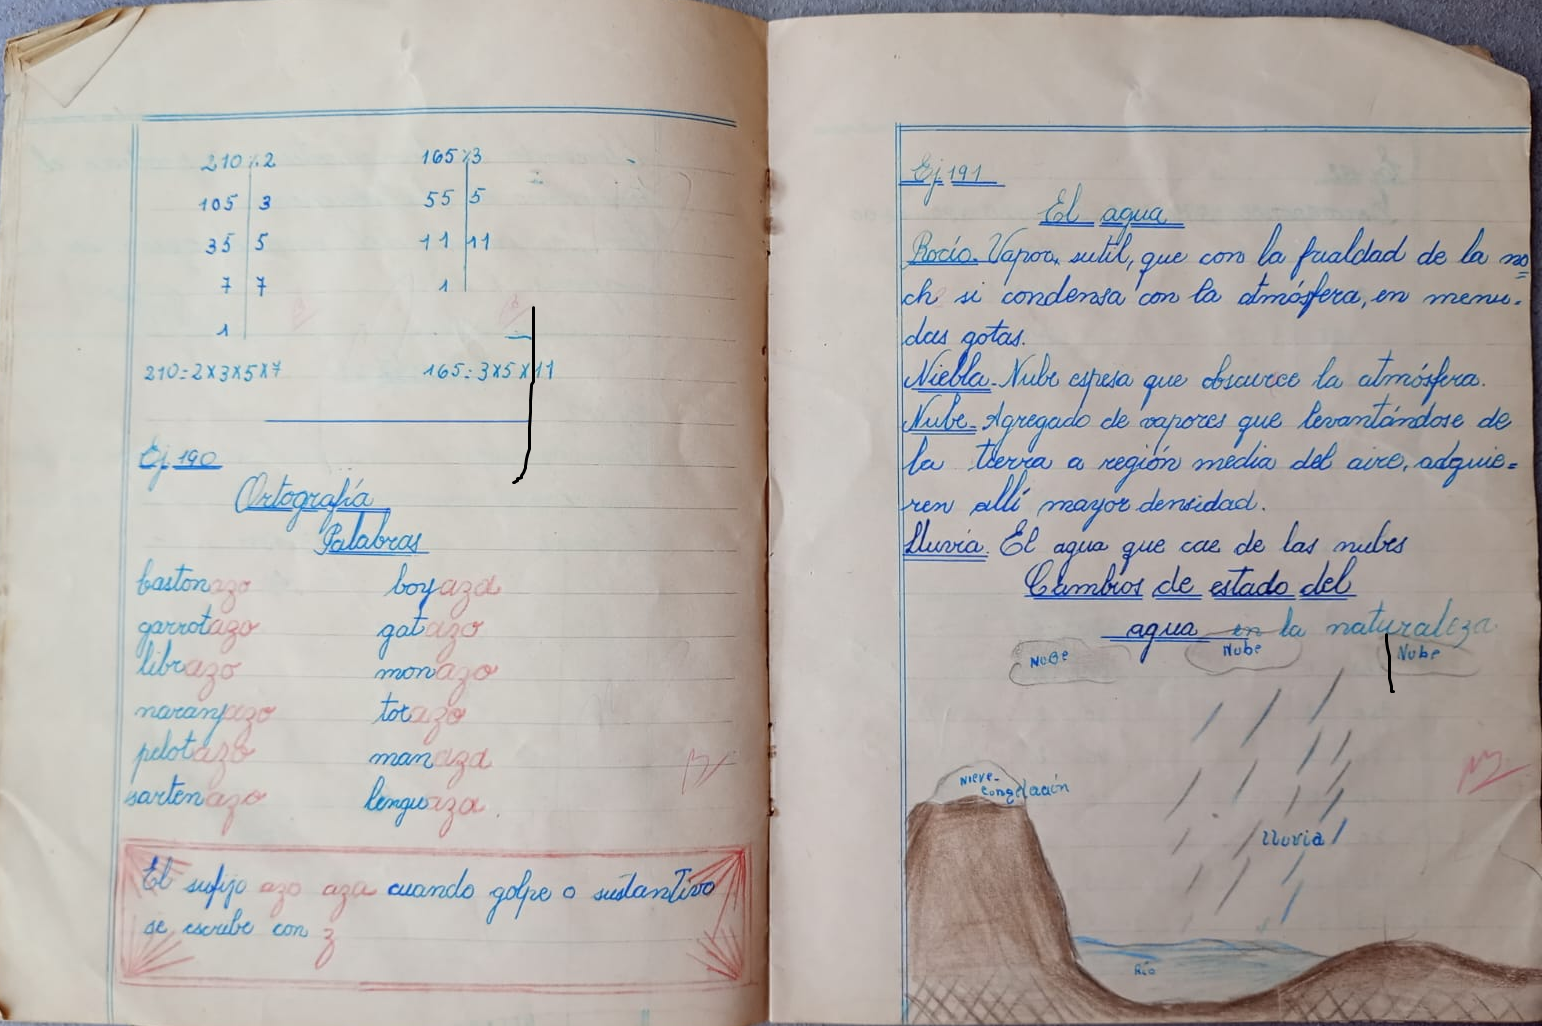 210 : 2
105 3
35 5
7 7
1
210=2x3x5x7
165 : 3
55 5
11 11
1
165=3x5x11
Ej. 190
Ortografía
Palabras
bastonazo boyaza
garrotazo gatazo
librazo monazo
naranjazo torazo
pelotazo manaza
sartenazo lenguaza.
El sufijo azo aza cuando golpe o sustantivo
se escribe con z
Ej. 191
El agua
Rocío. Vapor, sutil, que con la frialdad de la no=
che si condensa con la atmósfera, en menu-
das gotas.
Niebla. Nube espesa que obscurce la atmósfera.
Nube. Agregado de vapores que levantándose de
la tierra a región media del aire, adquie=
ren allí mayor densidad.
Lluvia. El agua que cae de las nubes
Cambios de estado del
agua en la naturaleza.
Nube Nube Nube
Nieve-
congelación
lluvia
Río